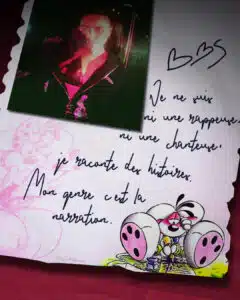 B.BS
Je ne suis
ni une rappeuse.
ni une chanteuse.
je raconte des histoires.
Mon genre c'est la
narration.